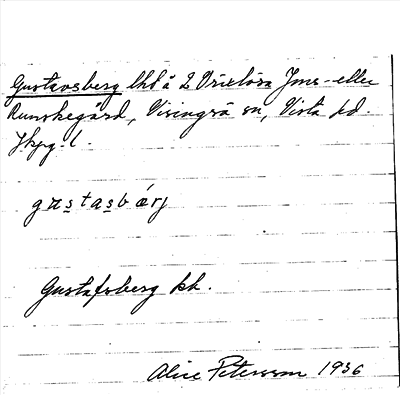 Gustavsberg lht å 2 Vrixlösa Jons- eller
Runskegård, Visingsö sn, Vista hd.
Jkpg. l.
gustasbærj
Gustafsberg kk.
Alice Petersson 1936